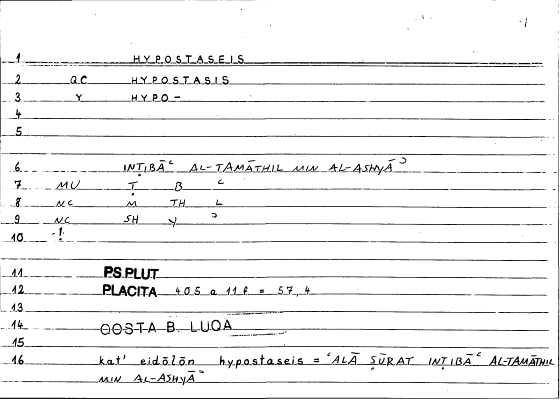 1 HYPOSTASEIS
2 QC HYPOSTASIS
3 Y HYPO-
4
5
6 INṬIBĀʿ AL-TAMĀTHIL MIN AL-ASHYĀʾ
7 MU Ṭ B ʿ
8 NC M TH L
9 NC SH Y ʾ
10
11 PS.PLUT
12 PLACITA 405 a 11f. = 57,4
13
14 QOSTA B. LUQA
15
16 kat' eidōlōn hypostaseis = ʿALĀ ṢŪRAT INṬIBĀʿ AL-TAMĀTHIL
MIN AL-ASHYĀʾ